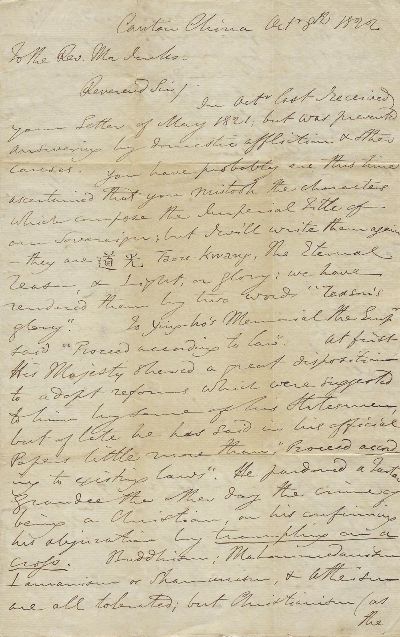 Canton China Octr 8th 1822
To the Rev. Mr Jenks.
Reverend Sir,
In Octr last I received
your Letter of May 1821, but was prevented
answering by domestic affliction & other
causes. You have probably ere this time
ascertained that you mistook the characters
which compose the Imperial title of
our Sovereign; but I will write them again
they are 道光 Taou Kwang, The Eternal
reason, & Light, or glory; we have
rendered them by two words "reason's
glory. To Memorial the Empr
said "Proceed according to law". At first
His Majesty shewed a great disposition
to adopt reforms which were suggested
to him by some of his Statesmen,
but of late he has said in his official
Papers little more than, "Proceed accord
ing to existing laws". He pardoned a Tartar
Grandee the other day the crime of
being a Christian, on his confirming
his abjuration by trampling on a
cross. Buddhism, Mahommedanism
Lamanism or Shamanism, & Atheism
are all tolerated; but Christianism (as
the